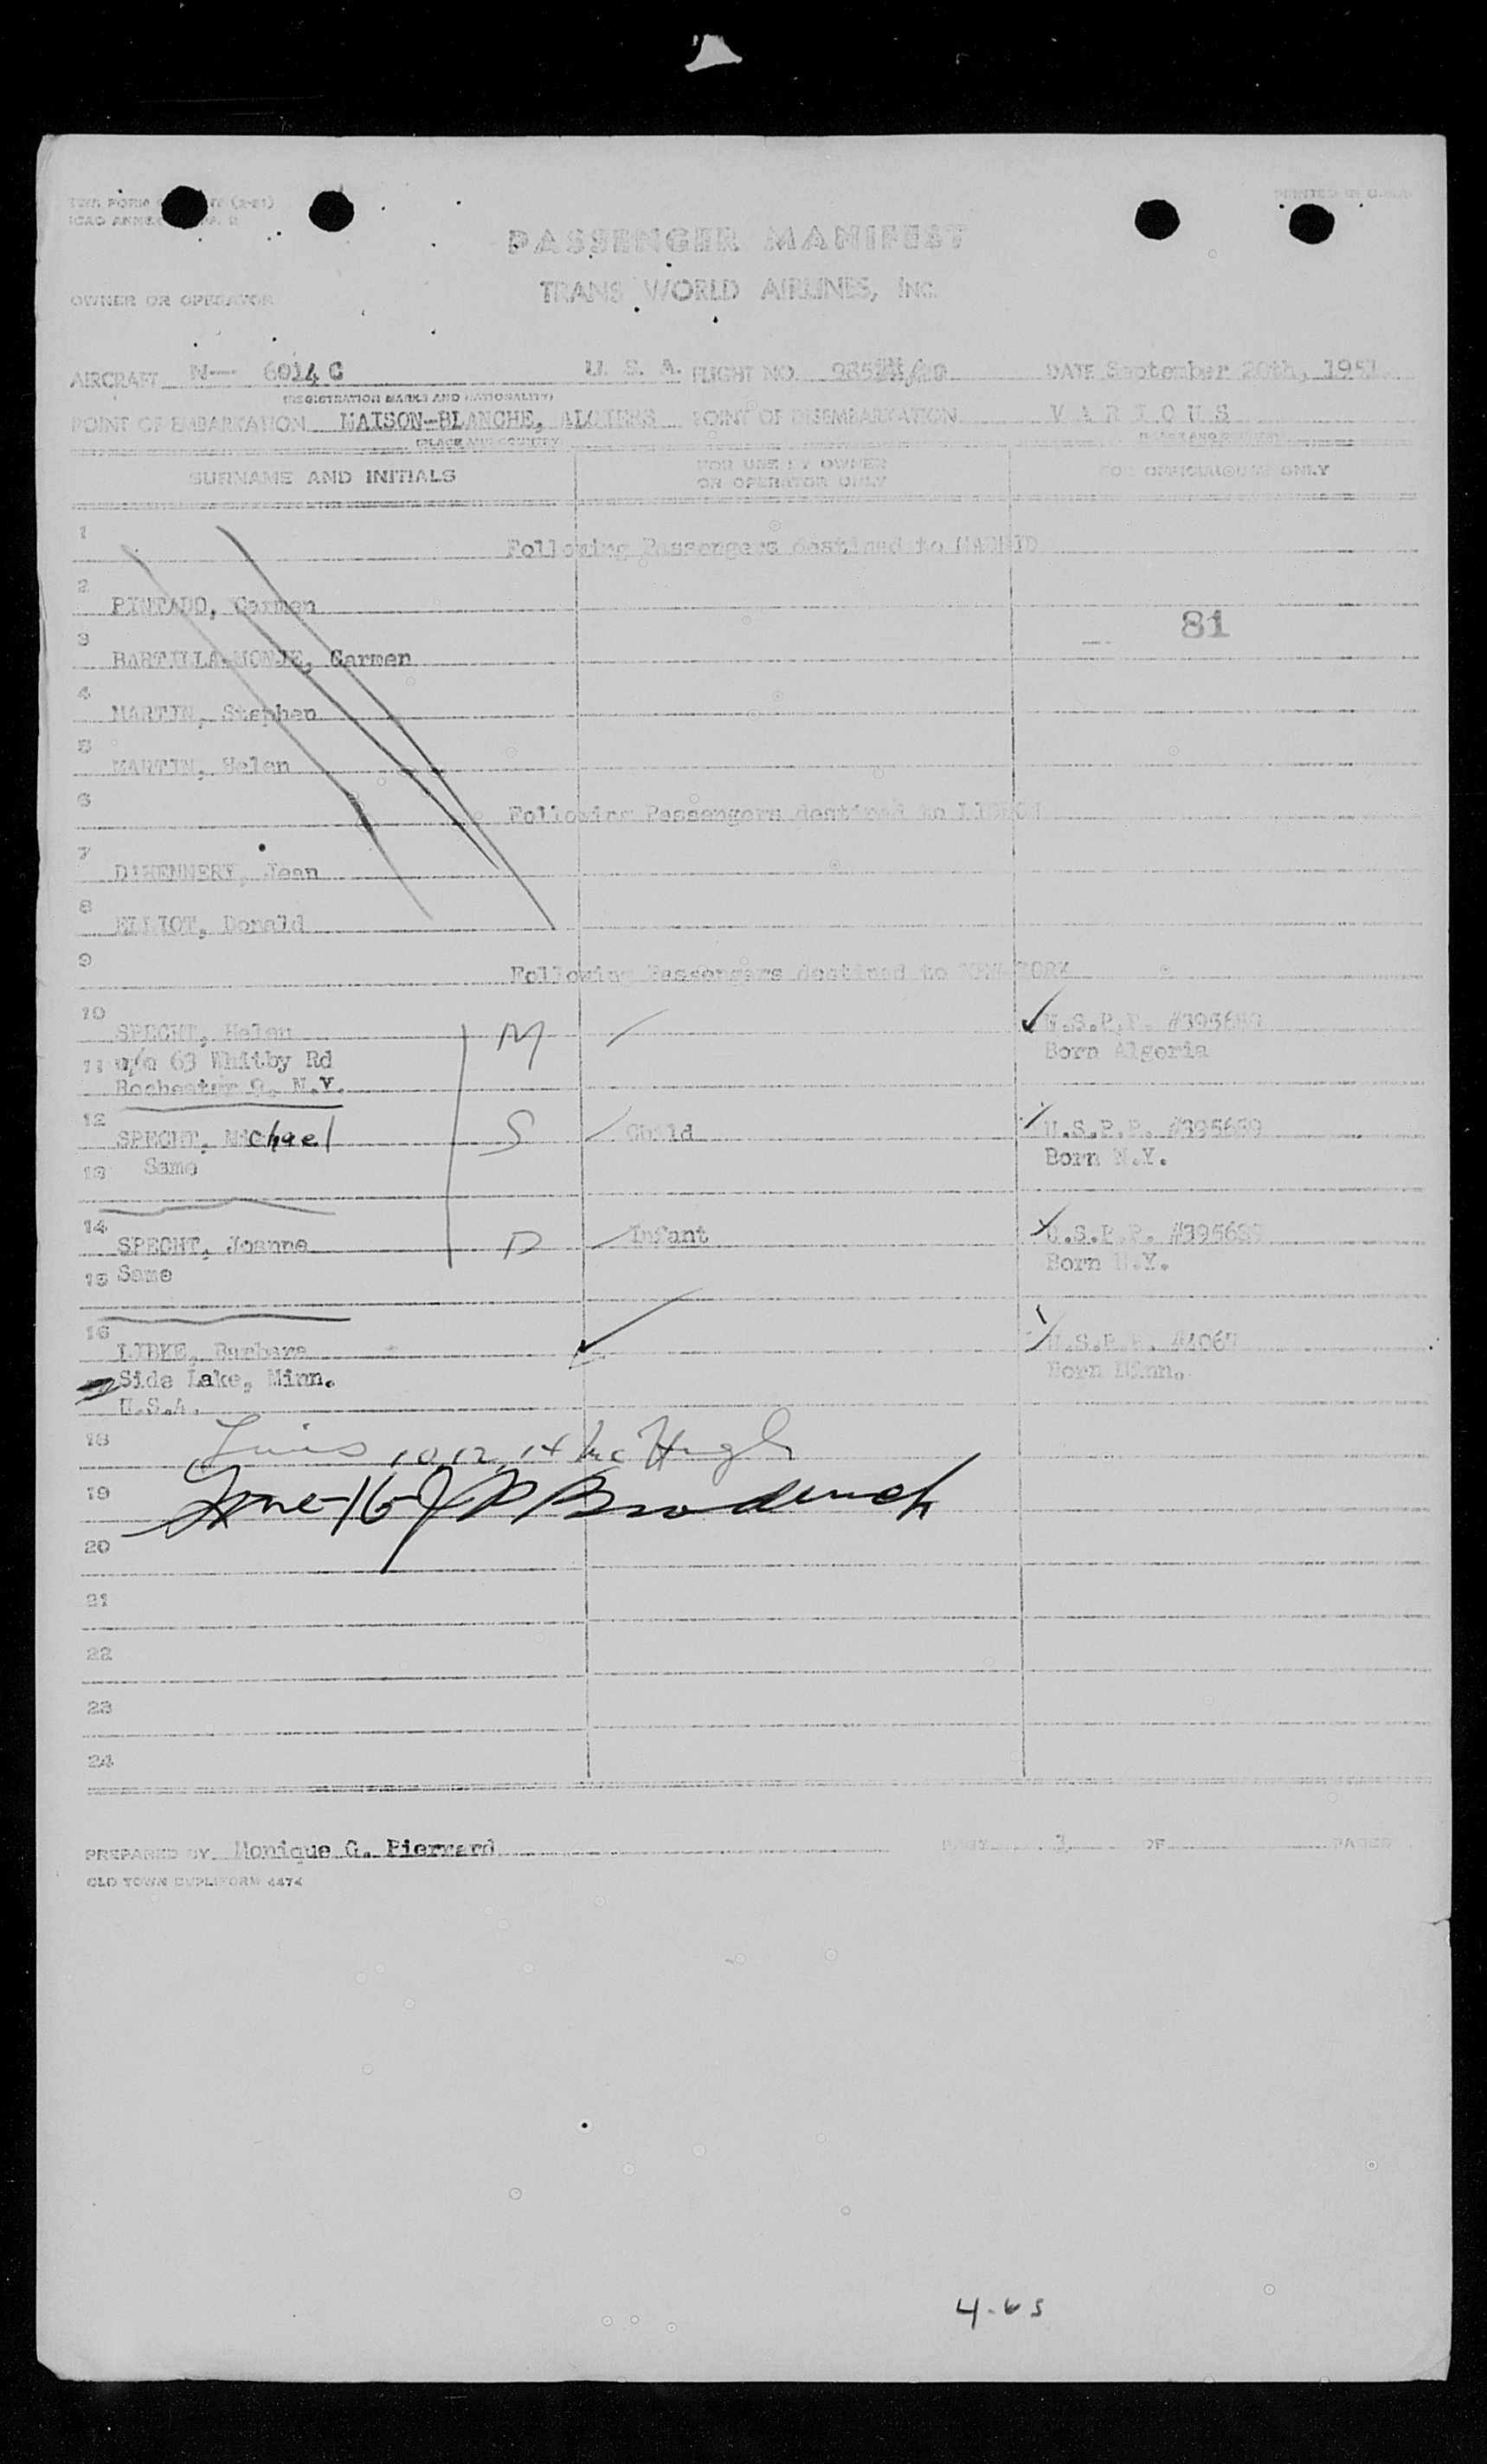 PRINTED IN U.S.A.
PASSENGER MANIFEST
TRANS WORLD AIRLINES, INC.
OWNER OR OPERATOR
AIRCRAFT N-- 6014 C U. S. A. FLIGHT NO. DATE September 20th, 1951.
(REGISTRATION MARKS AND NATIONALITY)
POINT OF EMBARKATION MAISON-BLANCHE, ALGIERS POINT OF DISEMBARKATION V A R I O U S
(PLACE AND COUNTRY) (PLACE AND COUNTRY)
SURNAME AND INITIALS FOR USE BY OWNER OR OPERATOR ONLY FOR OFFICIAL USE ONLY
1 Following Passengers destined to MADRID
2 PINTADO, Carmen
81
3 Carmen
4 MARTIN, Stephen
5 MARTIN, Helen
6 Following Passengers destined to LISBON
7 D'HENNERY, Jean
8 ELLIOT, Donald
9 Following Passengers destined to NEW-YORK
10 SPECHT, Helen M U.S.P.P. #395689
11 c/o 63 Whitby Rd Born Algeria
Rochester 9, N.Y.
12 SPECHT, Michael S Child U.S.P.P. #395689
13 Same Born N.Y.
14 SPECHT, Joanne D Infant U.S.P.P. #395689
15 Same Born N.Y.
16 LIBKE, Barbara U.S.P.P. #4067
Side Lake, Minn. Born Minn.
U.S.A.
18 Lines 10, 12, 14 Mc Hugh
19 Line-16-J
20
21
22
23
24
PREPARED BY Monique G. Pierrard PAGE 1 OF PAGES
OLD TOWN DUPLIFORM 4474
4-US